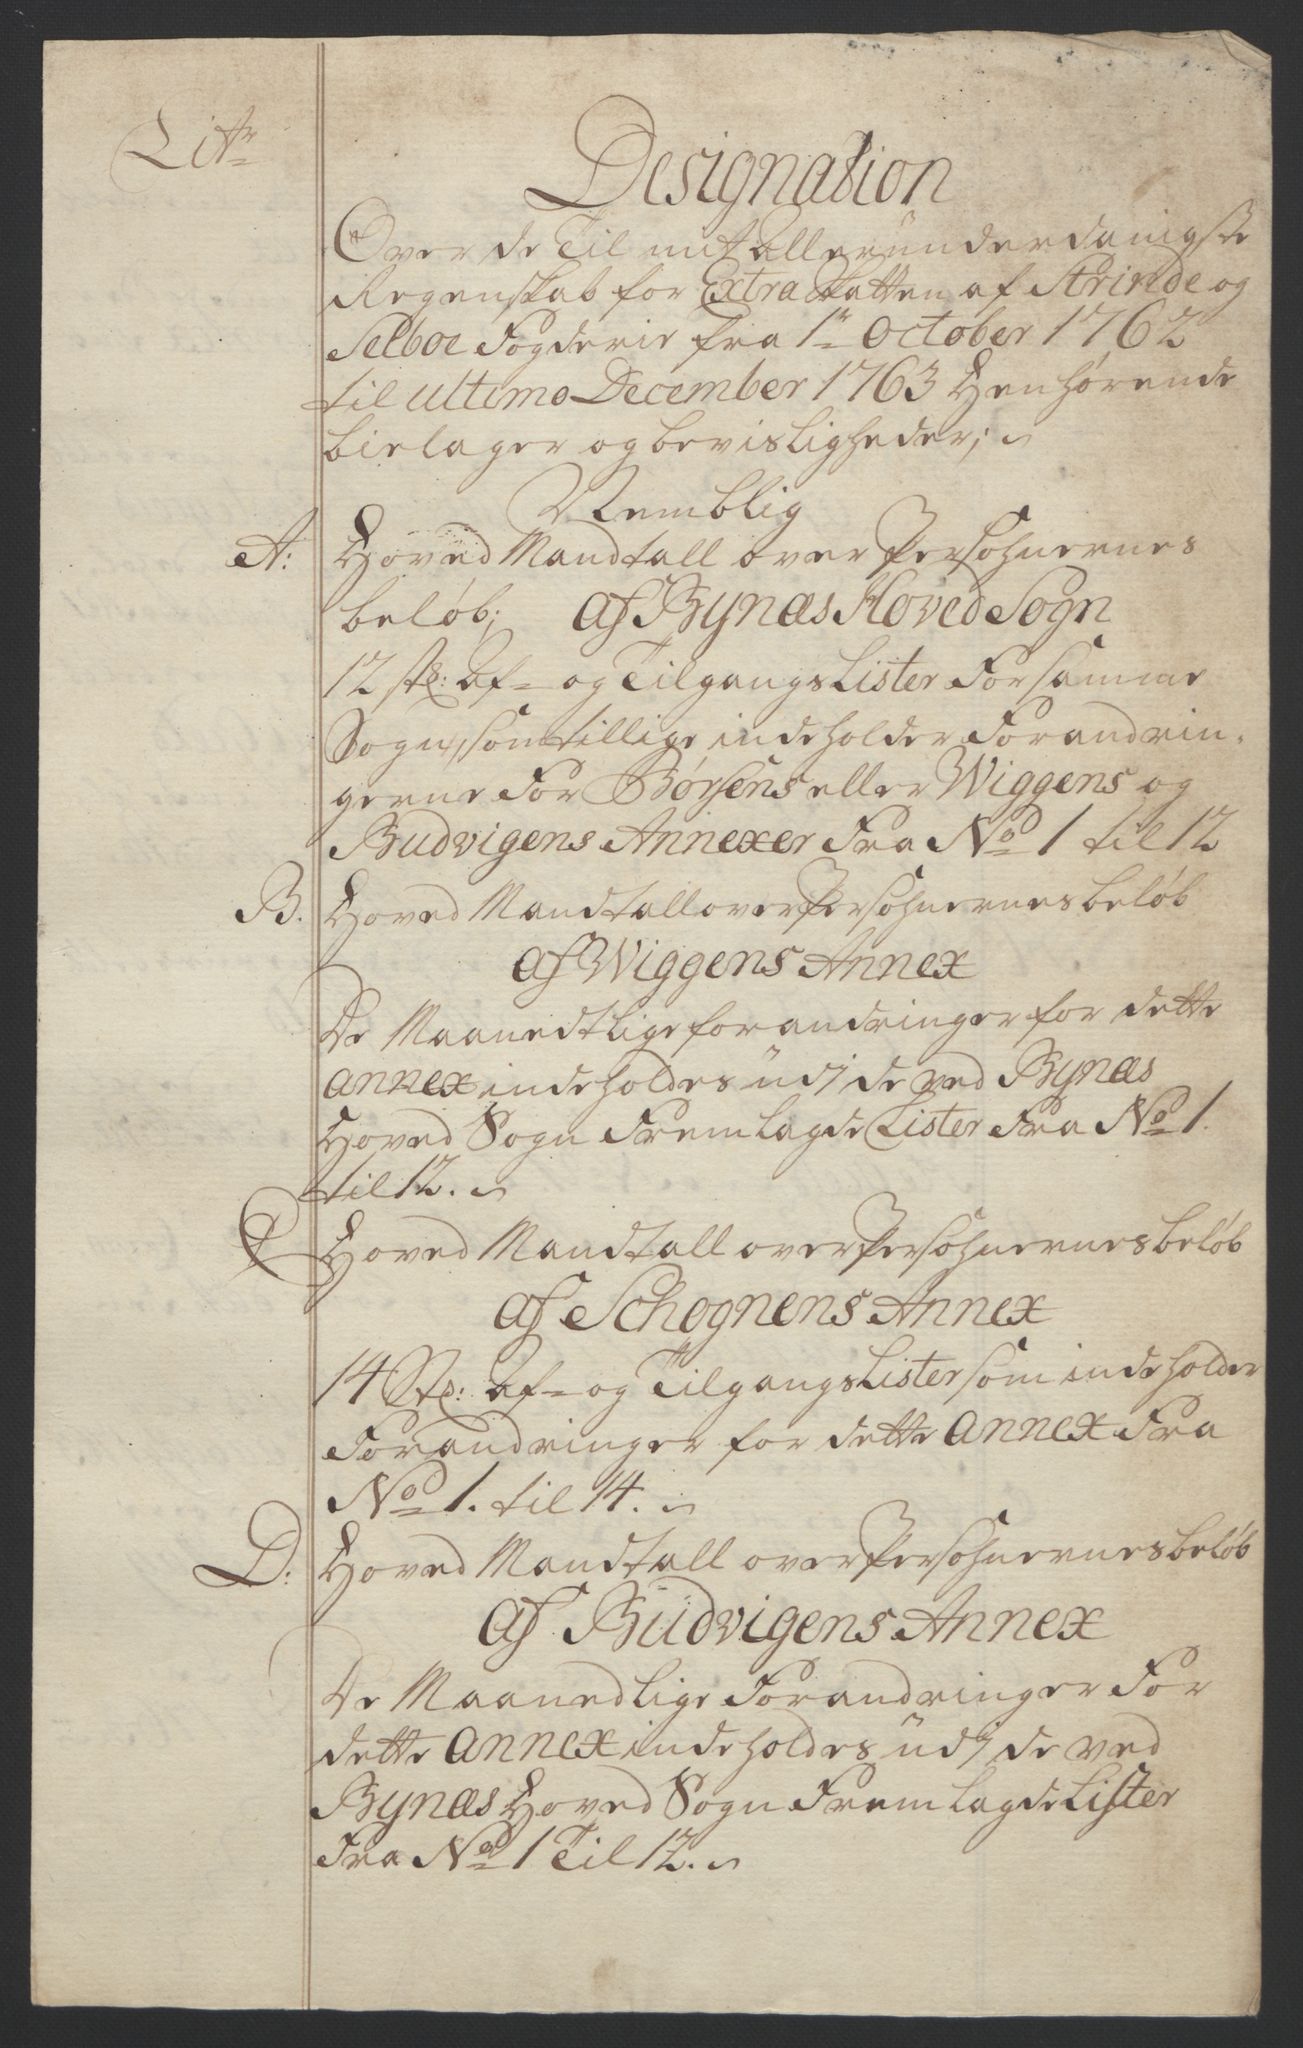 Litr
Designation
Over de Til mit alleründerdanigste
Regenskab for Extra Skatten af Strinde og
Selboe Fogderie fra 1te October 1762
til ultimo December 1763 Henhørende
bielager og bevisligheder;
Nemblig
A: Hoved Mandtall over Persohnernes
beløb; af Bynæs Hoved Sogn
12 stk: Af- og Tilgangs Lister For samme
Sogn, som tillige indeholder Forandrin-
gerne For Børsens eller Wiggens og
Budvigens Annexer Fra No 1 til 12
B. Hoved Mandtall over Persohnernes beløb
af Wiggens Annex
De Maanedtlige forandringer for dette
Annex indeholdes üdj de ved Bynæs
Hoved Sogn Fremlagde Lister Fra No 1.
til 12.
C Hoved Mandtall over Persohnernes beløb
af Schognens Annex
14 Stk: Af- og Tilgangs Lister som indeholder
Forandringer for dette Annex Fra
No 1. til 14.
D: Hoved Mandtall over Persohnernes beløb
af Büdvigens Annex
De Maanedlige Forandringer For
dette Annex indeholdes üdj de ved
Bynæs Hoved Sogn Fremlagde Lister
Fra No 1 Til 12.